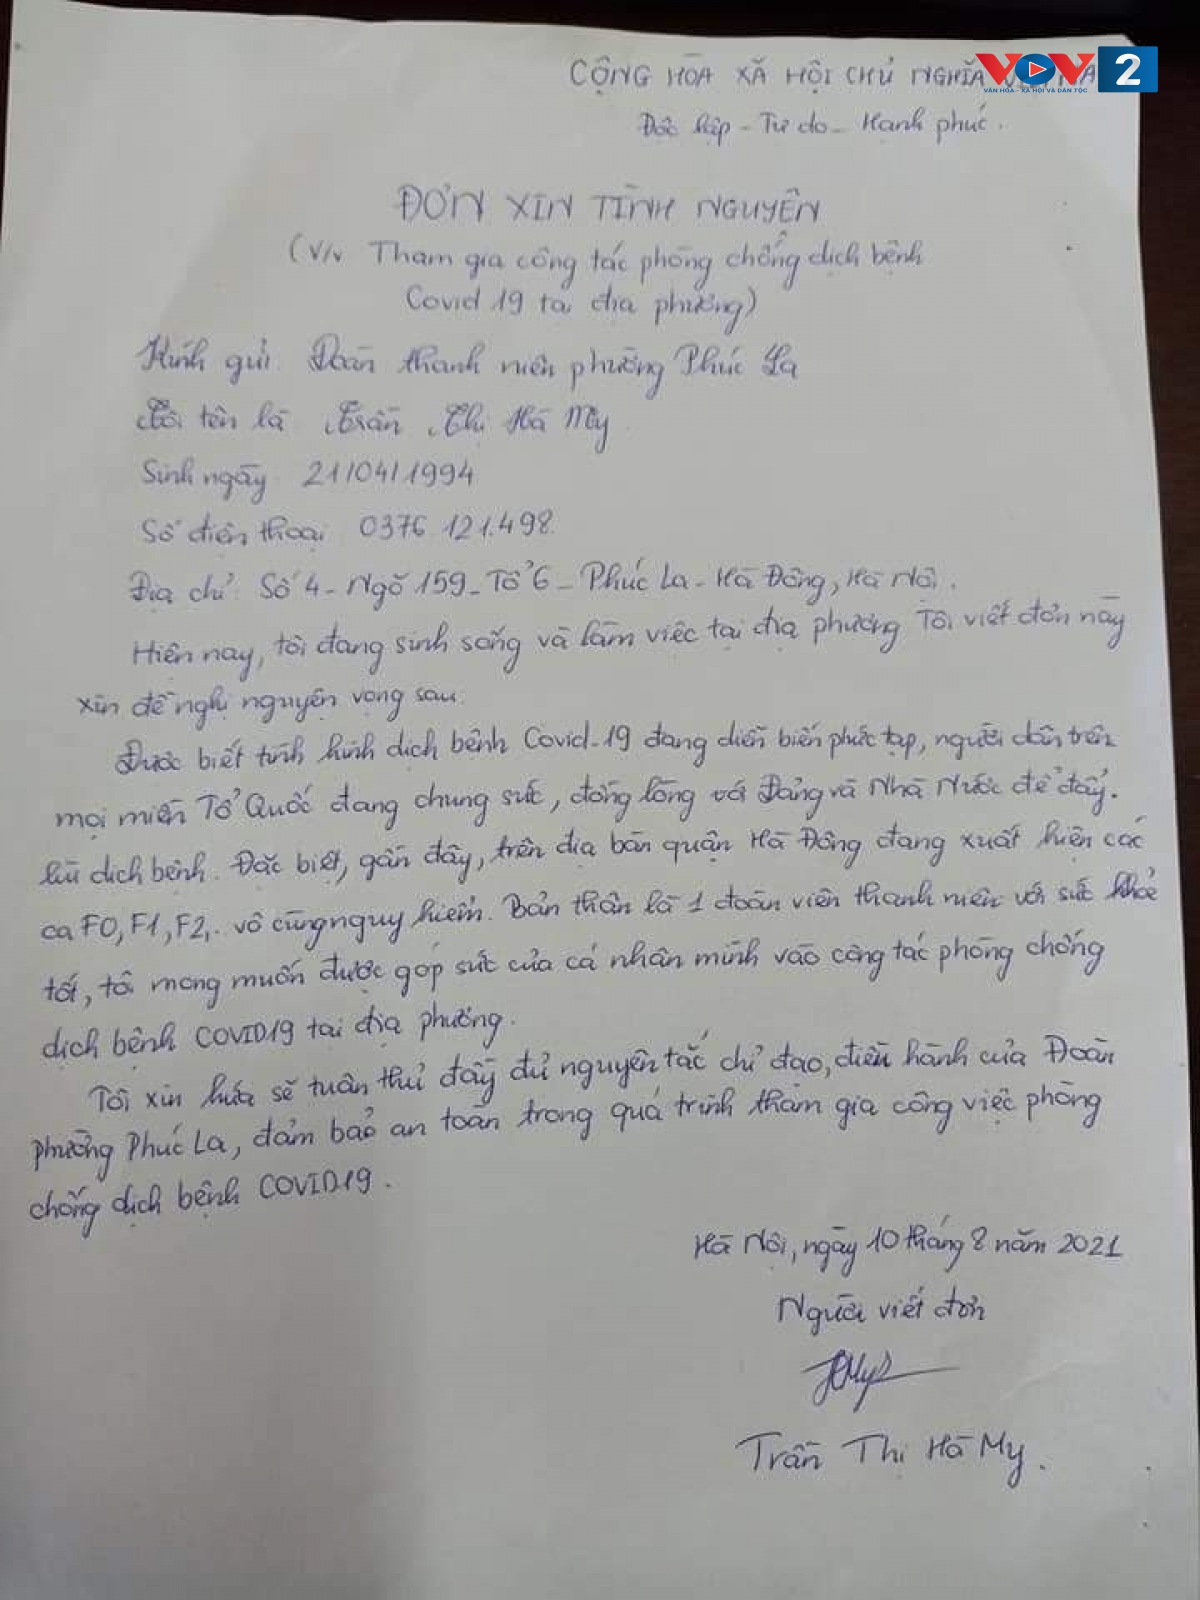 VOV 2
VĂN HÓA - XÃ HỘI VÀ DÂN TỘC
CỘNG HÒA XÃ HỘI CHỦ NGHĨA
Độc lập - Tự do - Hạnh phúc.
ĐƠN XIN TÌNH NGUYỆN
(V/v Tham gia công tác phòng chống dịch bệnh
Covid 19 tại địa phương)
Kính gửi: Đoàn thanh niên phường Phúc La
Tôi tên là Trần Thị Hà My
Sinh ngày 21/04/1994
Số điện thoại 0376 121.498.
Địa chỉ: Số 4 - Ngõ 159 - Tổ 6 - Phúc La - Hà Đông, Hà Nội.
Hiện nay, tôi đang sinh sống và làm việc tại địa phương Tôi viết đơn này
xin đề nghị nguyện vọng sau:
Được biết tình hình dịch bệnh Covid-19 đang diễn biến phức tạp, người dân trên
mọi miền Tổ Quốc đang chung sức, đồng lòng với Đảng và Nhà Nước để đẩy
lùi dịch bệnh. Đặc biệt, gần đây, trên địa bàn quận Hà Đông đang xuất hiện các
ca F0, F1, F2,.. vô cùng nguy hiểm. Bản thân là 1 đoàn viên thanh niên với sức khỏe
tốt, tôi mong muốn được góp sức của cá nhân mình vào công tác phòng chống
dịch bệnh COVID19 tại địa phương.
Tôi xin hứa sẽ tuân thủ đầy đủ nguyên tắc chỉ đạo, điều hành của Đoàn
phường Phúc La, đảm bảo an toàn trong quá trình tham gia công việc phòng
chống dịch bệnh COVID19.
Hà Nội, ngày 10 tháng 8 năm 2021
Người viết đơn
Trần Thị Hà My.